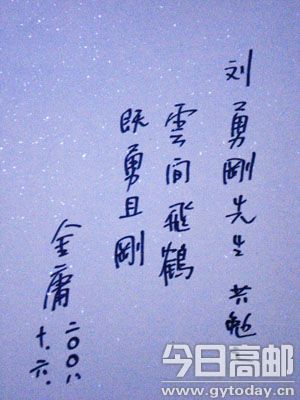 刘勇刚先生 共勉
雲间飛鶴
既勇且剛
金庸
二〇〇八
十.六.
今日高邮
www.gytoday.cn